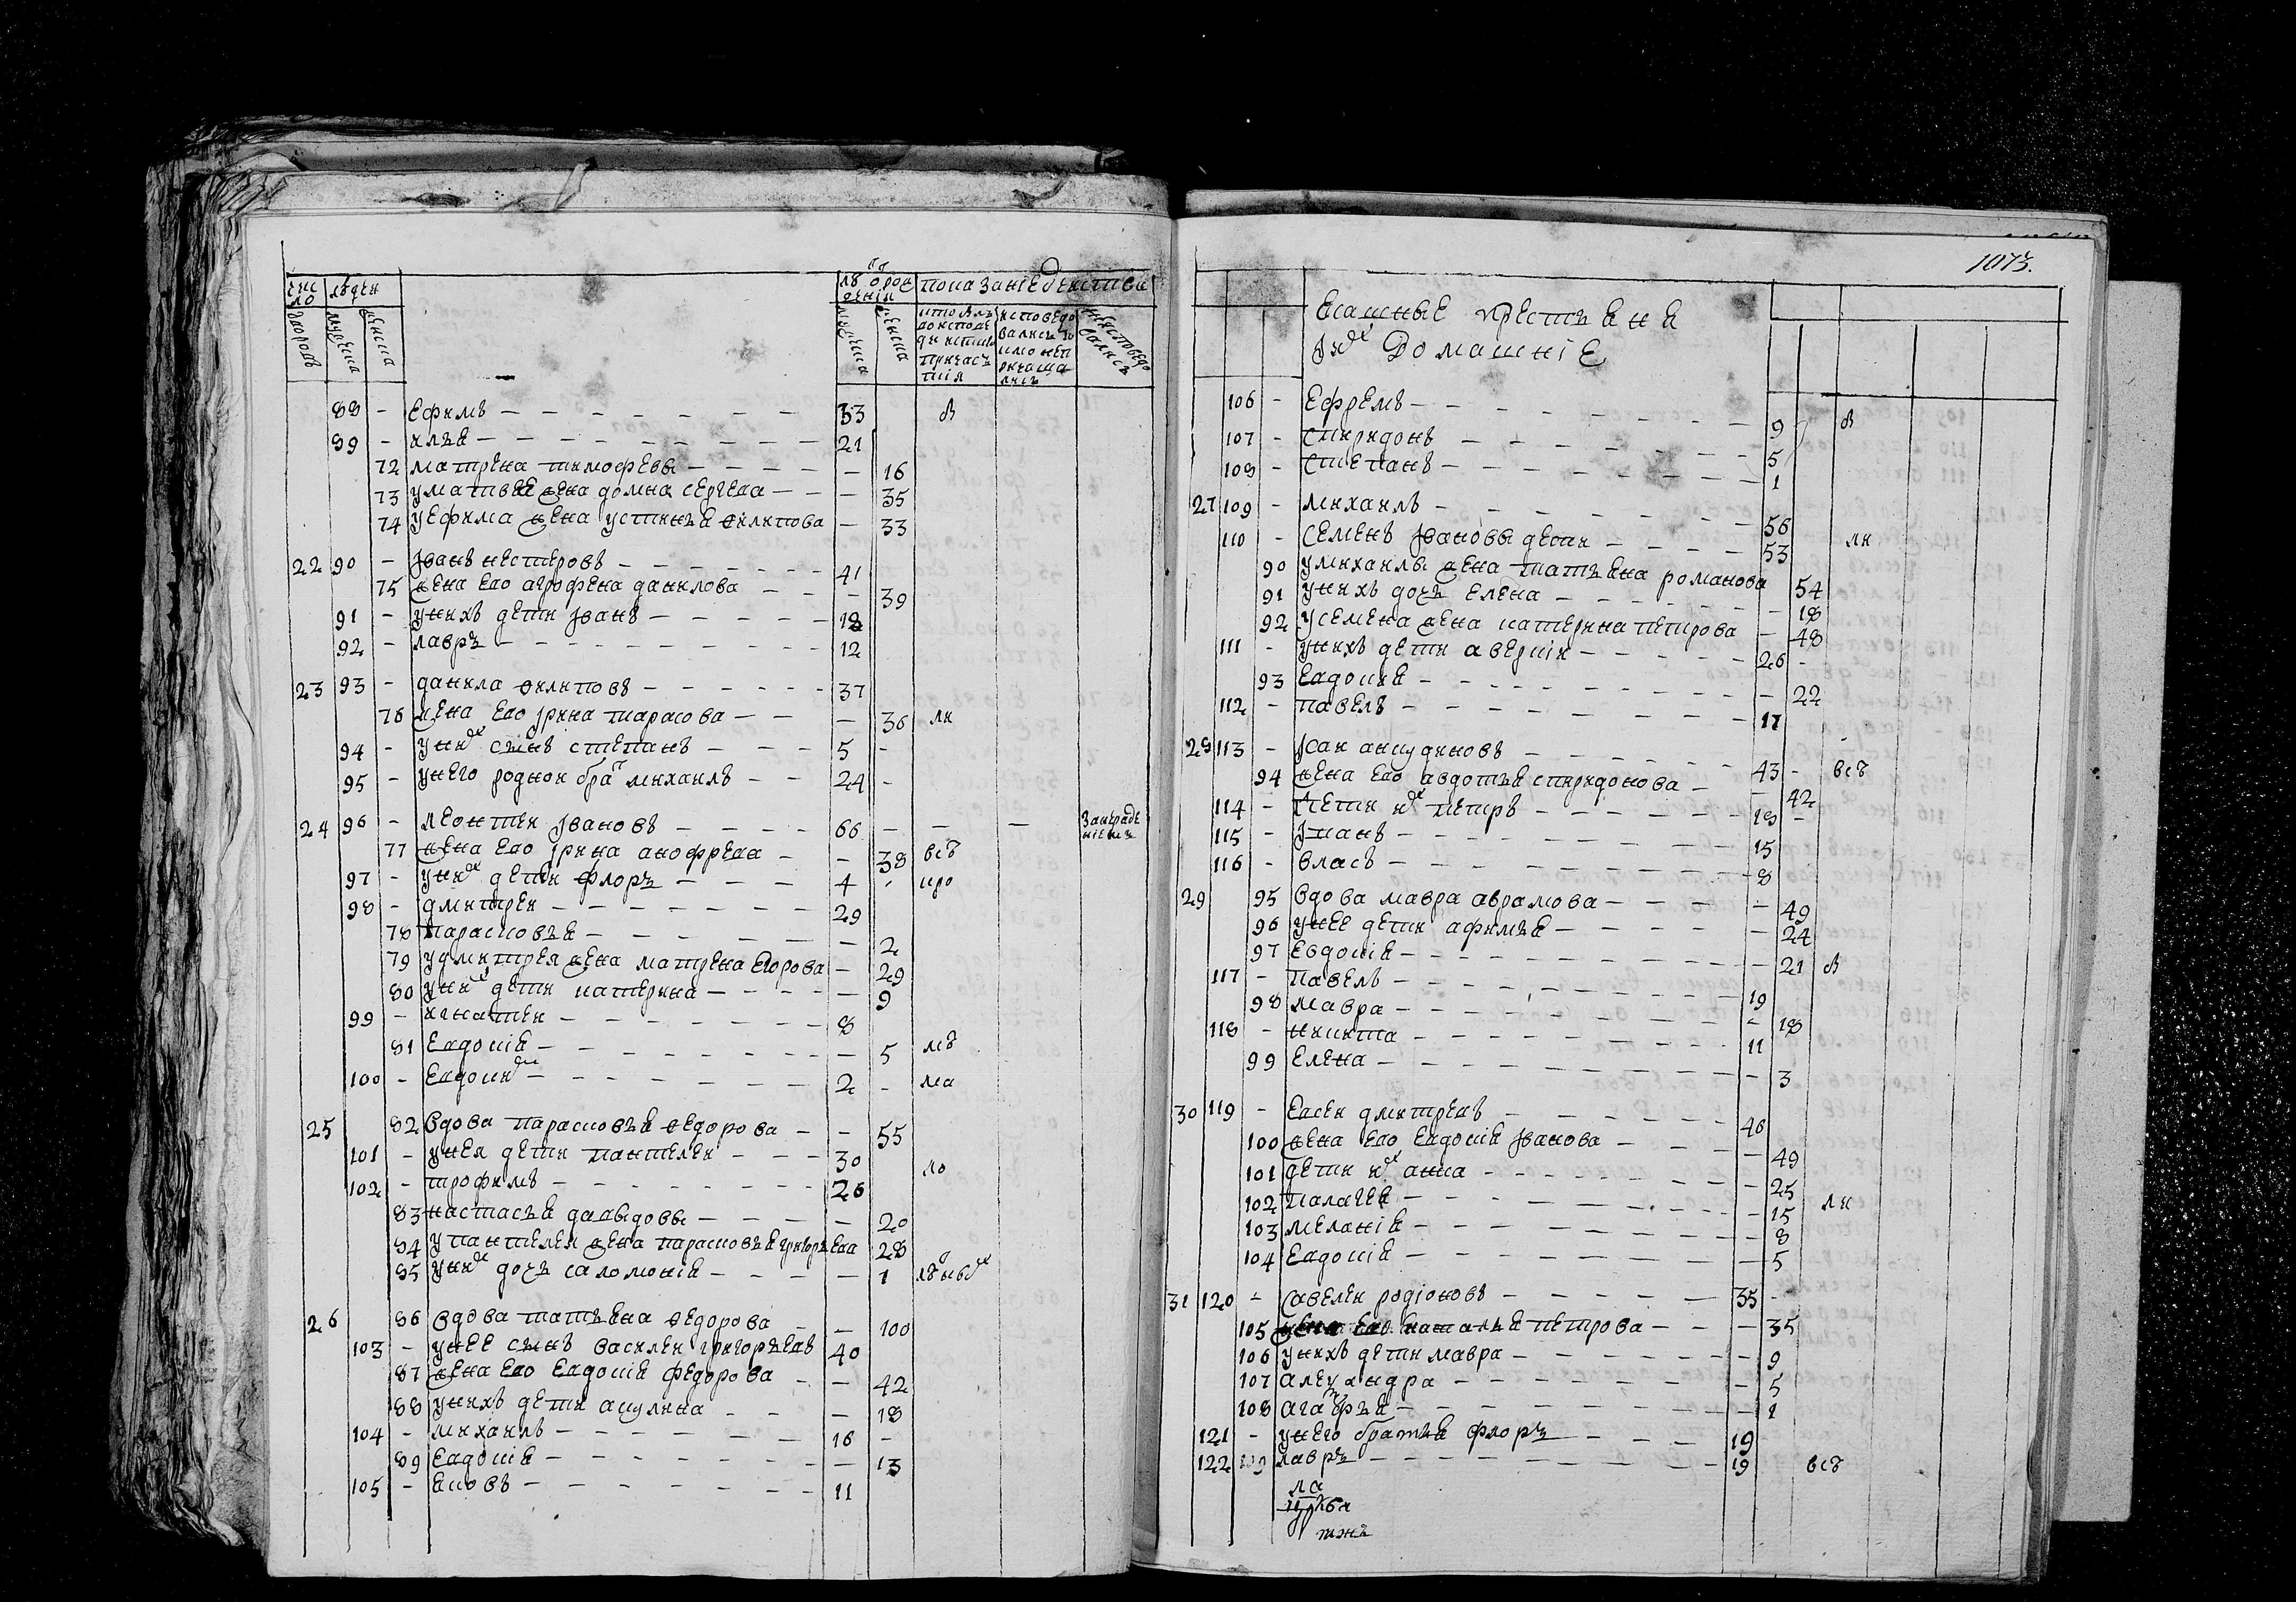 число людей лѣта от рожденія показаніе действа
дворовъ мужеска женска мужеска женска
88 - Ефимъ - 33 в
89 - Илья - 21
72 матрена тимофеевы - 16
73 у матвѣя жена домна сергеева - 35
74 у ефима жена устинья филипова - 33
22 90 - Іванъ нестеровъ - 41
75 жена ево агрофена данилова - 39
91 - у нихъ дети Іванъ - 18
92 - лавръ - 12
23 93 - данила филиповъ - 37
76 жена ево ірина тарасова - 36 ли
94 - у них сынъ степанъ - 5 -
95 - у него роднои брат михаилъ - 24 -
24 96 - леонтеи Івановъ - 66 - - -
77 жена ево ірина анофрева - 38
97 - у них дети флоръ - 4
98 - дмитреи - 29
78 парасковья - 2
79 у дмитрея жена матрена егорова - 29
80 у них дети катерина - 9
99 - игнатеи - 8
81 Евдокия - 5
100 - Евдоким - 2 -
25 82 вдова парасковья федорова - 55
101 - у нея дети пантелеи - 30
102 - трофимъ - 26
83 настасья давыдовы - 20
84 у пантелеи жена парасковья григорьева 28
85 у них дочь саломонія - 1
26 86 вдова татьяна федорова - 100
103 - у нее сынъ василеи григорьевъ 40
87 жена ево евдокия федорова - 42
88 у нихъ дети акулина - 18
104 - михаилъ - 16 -
89 Евдокия - 13
105 - яковъ - 11
1073.
ясашные крестьяня
них домашніе
106 - Ефремъ - 9 в
107 - спиридонъ - 5
108 - степанъ - 1
27 109 - михаилъ - 56
110 - семенъ Івановы дети - 53 ли
90 у михаилы жена татьяна романова 54
91 у нихъ дочь елена - 18
92 у семена жена катерина петрова - 48
111 - у нихъ дети аверкіи - 26 -
93 Евдокия - 22
112 - павелъ - 17
28 113 - - 43 -
94 жена ево авдотья спиридонова - 42
114 - дети их петръ - 18 -
115 - - 15
116 - власъ - 8
29 95 вдова мавра аврамова - 49
96 у нее дети афимья - 24
97 Евдокия - 21 в
117 - павелъ - 19
98 мавра - 18
118 - никита - 11
99 Елена - 3
30 119 - Евсеи дмитревъ - 46
100 жена ево евдокия Іванова - 49
101 дети их анна - 25
102 палагея - 15 ли
103 меланія - 8
104 Евдокия - 5
31 120 - савелеи родіоновъ - 35 -
105 жена ево наталья петрова - 35
106 у нихъ дети мавра - 9
107 александра - 5
108 агафья - 1
121 - у него братья флоръ - 19
122 лавръ - 19